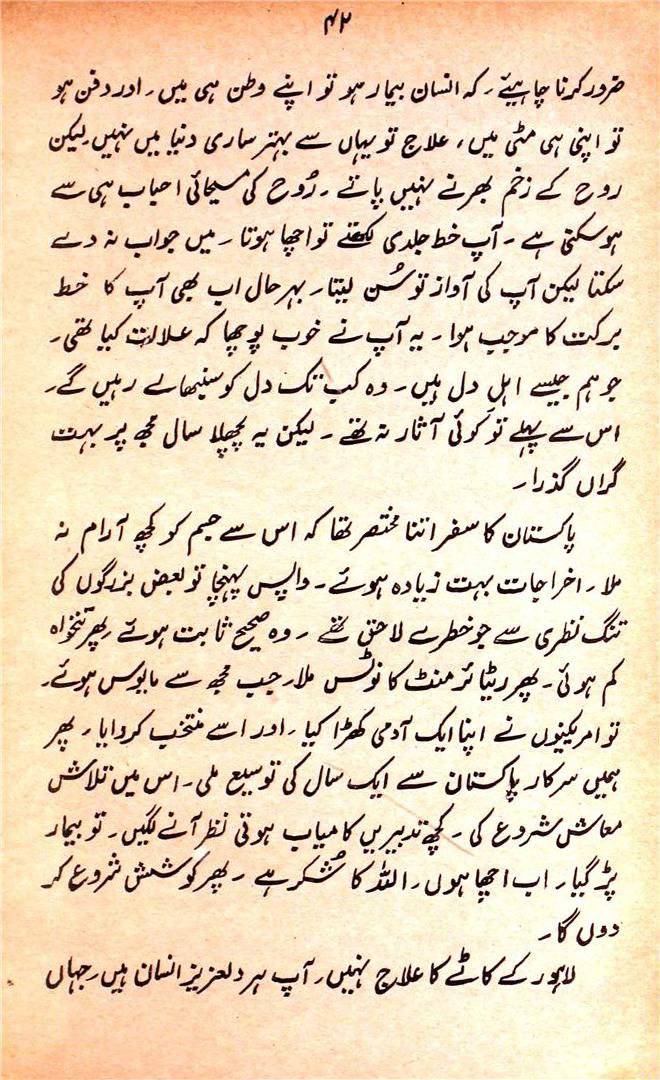 ۴۲
ضرور کرنا چاہیئے۔ کہ انسان بیمار ہو تو اپنے وطن ہی میں۔ اور دفن ہو
تو اپنی ہی مٹی میں، علاج تو یہاں سے بہتر ساری دنیا میں نہیں۔ لیکن
روح کے زخم بھرنے نہیں پاتے۔ رُوح کی مسیحائی احباب ہی سے
ہو سکتی ہے۔ آپ خط جلدی لکھتے تو اچھا ہوتا۔ میں جواب نہ دے
سکتا لیکن آپ کی آواز تو سُن لیتا۔ بہر حال اب بھی آپ کا خط
برکت کا موجب ہوا۔ یہ آپ نے خوب پوچھا کہ علالت کیا تھی۔
جو ہم جیسے اہلِ دل ہیں۔ وہ کب تک دل کو سنبھالے رہیں گے۔
اس سے پہلے تو کوئی آثار نہ تھے۔ لیکن یہ پچھلا سال مجھ پر بہت
گراں گذرا۔
پاکستان کا سفر اتنا مختصر تھا کہ اس سے جسم کو کچھ آرام نہ
ملا۔ اخراجات بہت زیادہ ہوئے۔ واپس پہنچا تو بعض بزرگوں کی
تنگ نظری سے جو خطرے لاحق تھے۔ وہ صحیح ثابت ہوئے۔ پھر تنخواہ
کم ہوئی۔ پھر ریٹائرمنٹ کا نوٹس ملا۔ جب مجھ سے مایوس ہوئے۔
تو امریکنوں نے اپنا ایک آدمی کھڑا کیا۔ اور اسے منتخب کروایا۔ پھر
ہمیں سرکار پاکستان سے ایک سال کی توسیع ملی۔ اس میں تلاش
معاش شروع کی۔ کچھ تدبیریں کامیاب ہوتی نظر آنے لگیں۔ تو بیمار
پڑ گیا۔ اب اچھا ہوں۔ اللہ کا شُکر ہے۔ پھر کوشش شروع کر
دوں گا۔
لاہور کے کاٹے کا علاج نہیں۔ آپ ہر دلعزیز انسان ہیں۔ جہاں